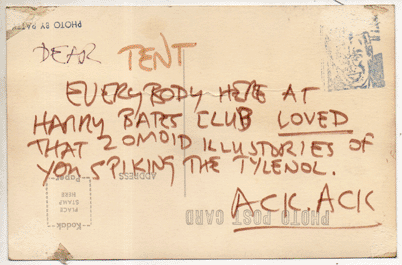 PHOTO BY
DEAR TENT
EVERYBODY HERE AT
HARRY BATES CLUB LOVED
THAT ZOMOID ILLUSTORIES OF
YOU SPIKING THE TYLENOL.
ADDRESS
Paper
PLACE
STAMP
HERE
Kodak
ACK. ACK
PHOTO POST CARD